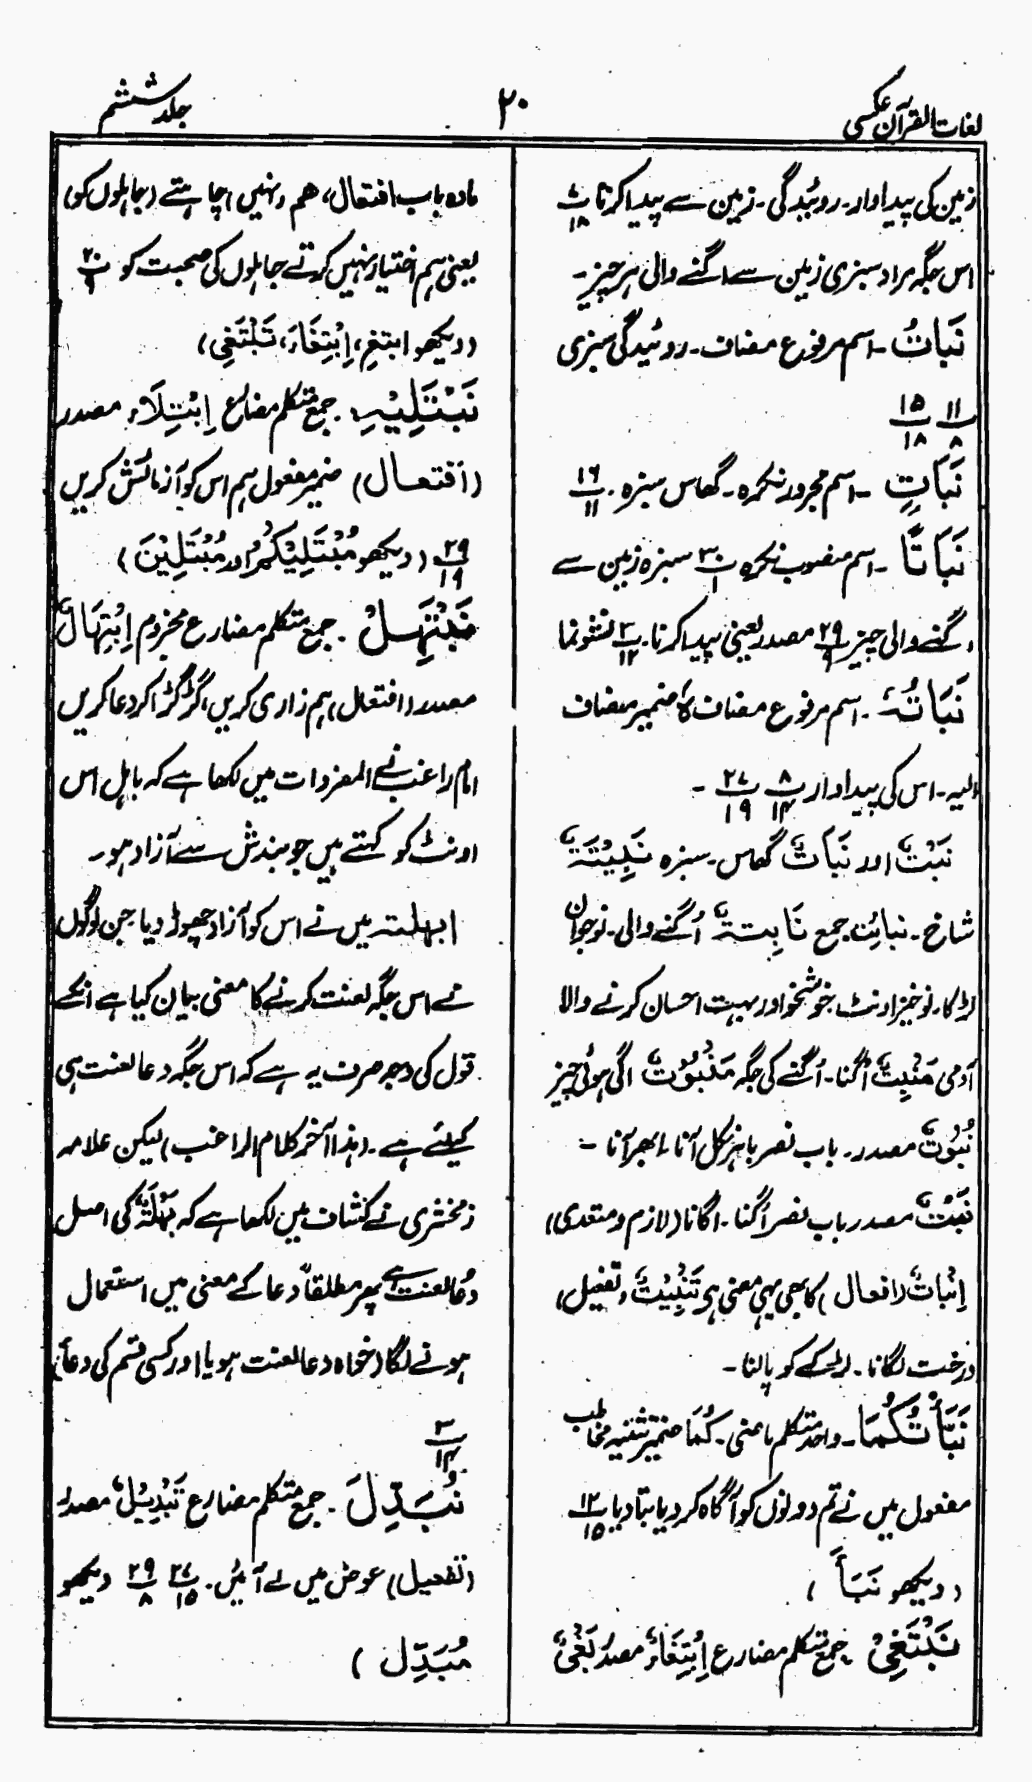 لغات القرآن عکسی
۲۰
جلد ششم
زمین کی پیداوار۔ روئیدگی۔ زمین سے پیدا کرنا ۷/۱۸
اس جگہ مراد سبزی زمین سے اگنے والی ہر چیز۔
نَبَاتُ ۔ اسم مرفوع مضاف۔ روئیدگی سبزی
۱۱/۸ ۱۵/۱۸
نَبَاتٍ ۔ اسم مجرور نکرہ۔ گھاس سبزہ۔ ۱۶/۱۱
نَبَاتًا ۔ اسم منصوب نکرہ ۳۰/۱ سبزہ زمین سے
اگنے والی چیز ۲۹/۹ مصدر یعنی پیدا کرنا۔ ۳/۱۲ نشوونما
نَبَاتُهٗ ۔ اسم مرفوع مضاف ہٗ ضمیر مضاف
الیہ۔ اس کی پیداوار ۸/۱۴ ۲۷/۱۹ ۔
نَبْتٌ اور نَبَاتٌ گھاس۔ سبزہ نَبِيْتَةٌ
شاخ۔ نبائت جمع نَابِتَةٌ اُگنے والی۔ نوجوان
لڑکا۔ نوخیز اونٹ۔ خوشخو اور بہت احسان کرنے والا
آدمی مَنْبِتٌ اُگنا۔ اُگنے کی جگہ مَنْبُوْتٌ اگی ہوئی چیز
نُبُوْتٌ مصدر۔ باب نصر باہر نکل آنا۔ ابھر آنا ۔
نَبْتٌ مصدر باب نصر اُگنا۔ اگانا (لازم و متعدی)
اِنْبَاتٌ (افعال) کا بھی یہی معنی ہی تَنْبِيْتٌ (تفعیل)
درخت لگانا۔ لڑکے کو پالنا۔
نَبَّأْتُكُمَا ۔ واحد متکلم ماضی۔ كُمَا ضمیر تثنیہ مخاطب
مفعول میں نے تم دونوں کو آگاہ کر دیا بتا دیا ۱۲/۱۵
(دیکھو نَبَأً)
نَبْتَغِيْ جمع متکلم مضارع اِبْتِغَاءٌ مصدر بَغْيٌ
مادہ باب افتعال، ہم (نہیں) چاہتے (جاہلوں کو)
یعنی ہم اختیار نہیں کرتے جاہلوں کی صحبت کو ۲۰/۹
(دیکھو ابتغ، اِبْتِغَاءَ، تَبْتَغِي)
نَبْتَلِيْهِ ۔ جمع متکلم مضارع اِبْتِلَاءٌ مصدر
(افتعال) ضمیر مفعول ہم اس کو آزمائش کریں
۲۹/۱۹ (دیکھو مُبْتَلِيْكُمْ اور مُبْتَلِيْنَ)
نَبْتَهِلْ ۔ جمع متکلم مضارع مجزوم اِبْتِهَالٌ
مصدر (افتعال) ہم زاری کریں، گڑگڑا کر دعا کریں
امام راغب نے المفردات میں لکھا ہے کہ باہل اس
اونٹ کو کہتے ہیں جو بندش سے آزاد ہو۔
ابهلته میں نے اس کو آزاد چھوڑ دیا جن لوگوں
نے اس جگہ لعنت کرنے کا معنی بیان کیا ہے انکے
قول کی وجہ صرف یہ ہے کہ اس جگہ دعا لعنت ہی
کیلئے ہے۔ (ہذا آخر کلام الراغب) لیکن علامہ
زمخشری نے کشاف میں لکھا ہے کہ بَهْلَةٌ کی اصل
دعا لعنت ہے پھر مطلقاً دعا کے معنی میں استعمال
ہونے لگا (خواہ دعا لعنت ہو یا اور کسی قسم کی دعا)
۳/۱۴
نُبَدِّلَ ۔ جمع متکلم مضارع تَبْدِيْلٌ مصدر
(تفعیل) عوض میں لے آئیں۔ ۲۷/۱۵ ۲۹/۸ دیکھو
مُبَدِّل )